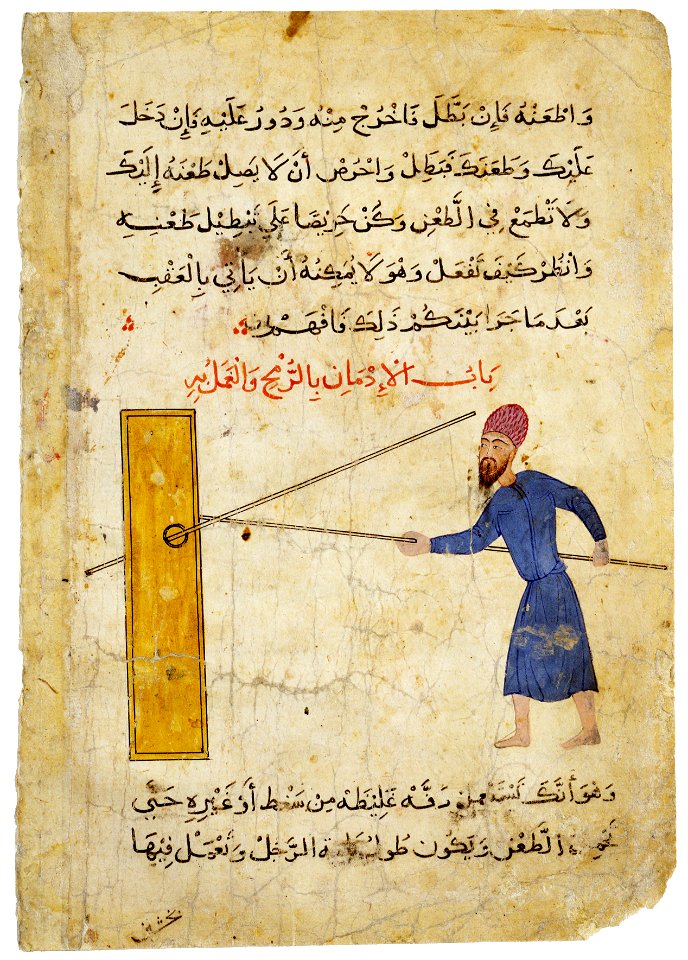 وَاطْعَنْهُ فَإِنْ بَطَّلَ فَاخْرُجْ مِنْهُ وَدُورْ عَلَيْهِ فَإِنْ دَخَلَ
عَلَيْكَ وَطَعَنَكَ فَبَطِلْ وَاحْرُصْ أَنْ لَا يَصِلْ طَعْنَهُ إِلَيْكَ
وَلَا تَطْمَعْ فِي الطَّعْنِ وَكُنْ حَرِيصًا عَلَي تَبْطِيْلِ طَعْنِهِ
وَانْظُرْ كَيْفَ تَفْعَلْ وَهُوَ لَا يُمْكِنُهُ أَنْ يَاتِي بِالْعَقْبِ
بَعْدَ مَا جَرَا بَيْنَكُمْ ذَلِكَ فَافْهَمْ
بَابُ الْإِدْمَانِ بِالرُّمْحِ وَالْعَمَلُ بِهِ
وَهُوَ أَنَّكَ دَفَّهْ غَلِيظَهْ مِنْ سَنْط أَوْ غَيْرِهِ حَتَّي
الطَّعْنْ وَيَكُون طُولُ الرَّجُلْ وَتَعْمَلْ فِيهَا